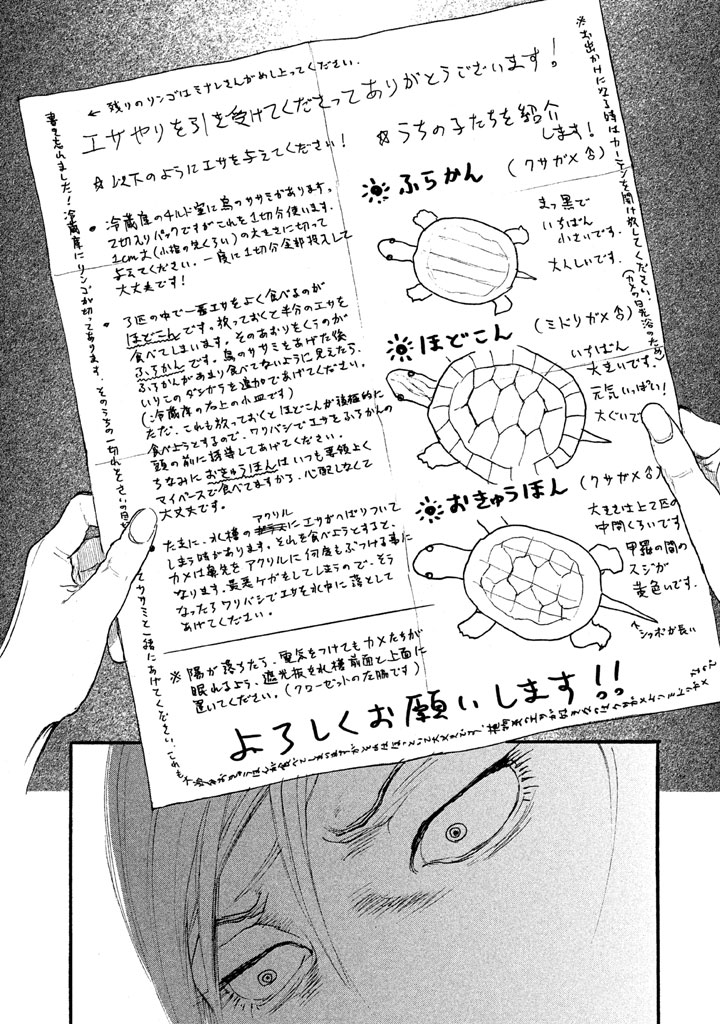 ← 残りのリンゴはミナレさんがめし上ってください.
エサやりを引き受けてくださってありがとうございます!
☆ 以下のようにエサを与えてください!
• 冷蔵庫のチルド室に鳥のササミがあります。
2切入りパックですがこれを1切分使います.
1cm大(小指の先くらい)の大きさに切って
与えてください. 一度に1切分全部投入して
大丈夫です!
• 3匹の中で一番エサをよく食べるのが
ほどこんです。放っておくと半分のエサを
食べてしまいます。そのあおりをくうのが
ふらかんです。鳥のササミをあげた後
ふらかんがあまり食べてないように見えたら、
いりこのダシガラを追加であげてください。
(冷蔵庫の右上の小皿です)
ただ、これも放っておくとほどこんが積極的に
食べようとするので、ワリバシでエサをふらかんの
頭の前に誘導してあげてください.
ちなみにおきゅうほんはいつも要領よく
マイペースで食べてますから、心配しなくて
大丈夫です。
• たまに、水槽のアクリルにエサがへばりついて
しまう時があります。それを食べようとすると、
カメは鼻先をアクリルに何度もぶつける事に
なります。最悪ケガをしてしまうので、そう
なったらワリバシでエサを水中に落として
あげてください.
※ 陽が落ちたら、電気をつけてもカメたちが
眠れるよう、遮光板を水槽前面と上面に
置いてください。(クローゼットの左脇です)
よろしくお願いします!!
☆うちの子たちを紹介
します!
ふらかん
(クサガメ♂)
まっ黒で
いちばん
小さいです.
大人しいです。
ほどこん
(ミドリガメ♂)
いちばん
大きいです.
元気いっぱい!
大ぐいで
おきゅうほん
(クサガメ♂)
大きさは上2匹の
中間くらいです
甲羅の間の
スジが
黄色いです.
↑シッポが長い
※お出かけになる時はカーテンを開け放してください.
(カメの日光浴のため)
書き忘れました! 冷蔵庫にリンゴが切ってあります. そのうちの一切れを
てササミと一緒にあげてください.